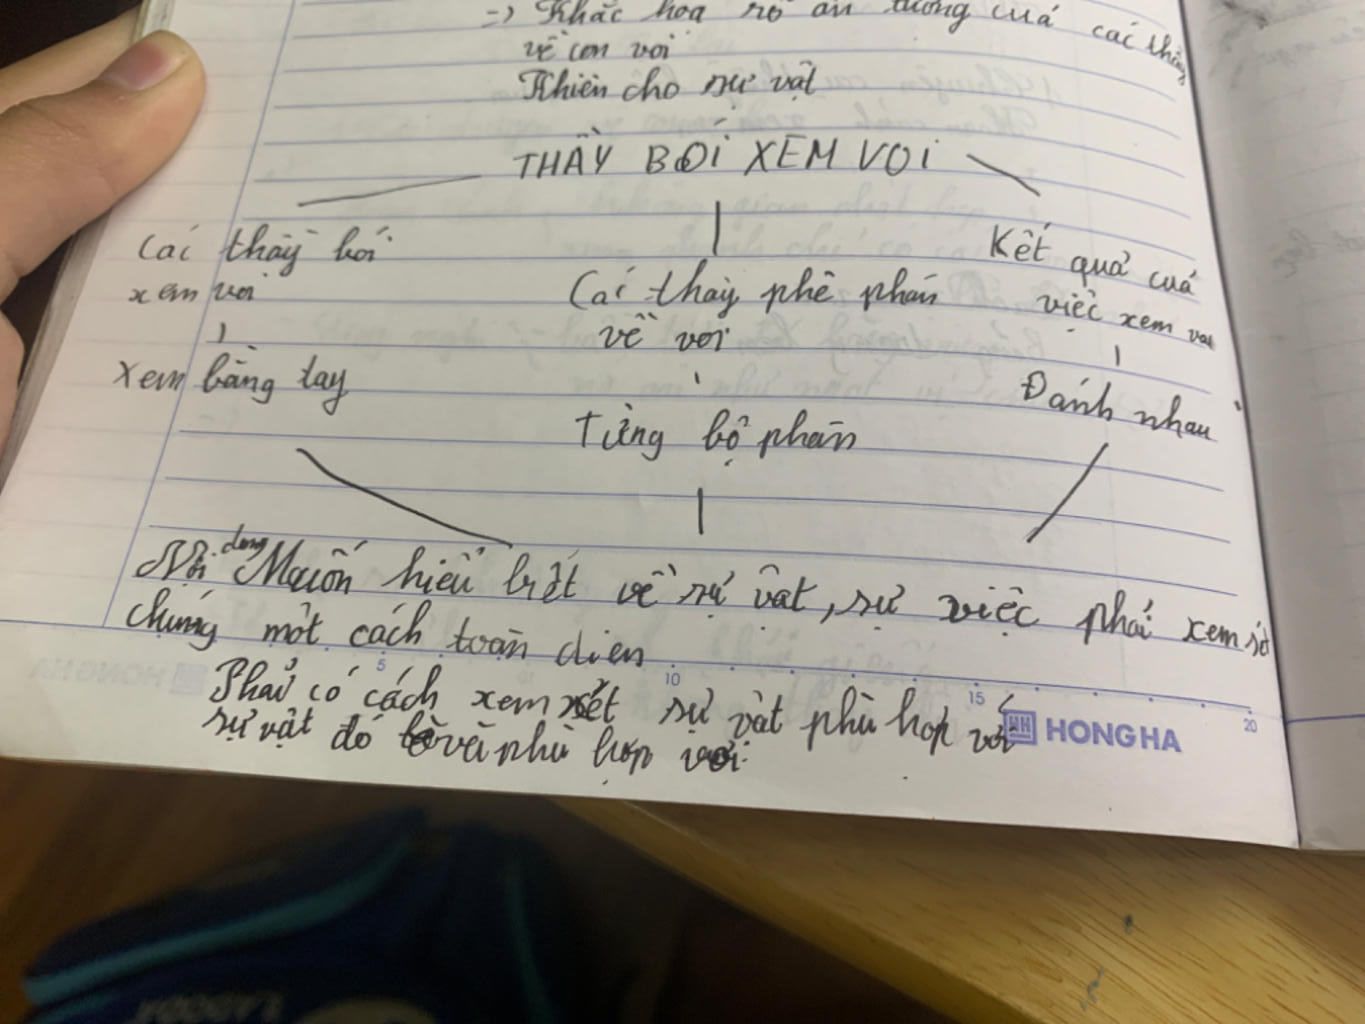 =) Khắc hoạ rõ ấn tượng của các thầy
về con voi
Khiến cho sự vật
THẦY BÓI XEM VOI
Các thầy bói
xem voi
Xem bằng tay
Các thầy phê phán
về voi
Từng bộ phận
Kết quả của
việc xem voi
Đánh nhau
Nội dung Muốn hiểu biết về sự vật, sự việc phải xem sét
chúng một cách toàn diện
Phải có cách xem xét sự vật phù hợp với
sự vật đó và phù hợp với
5 10 15 20
HONG HA